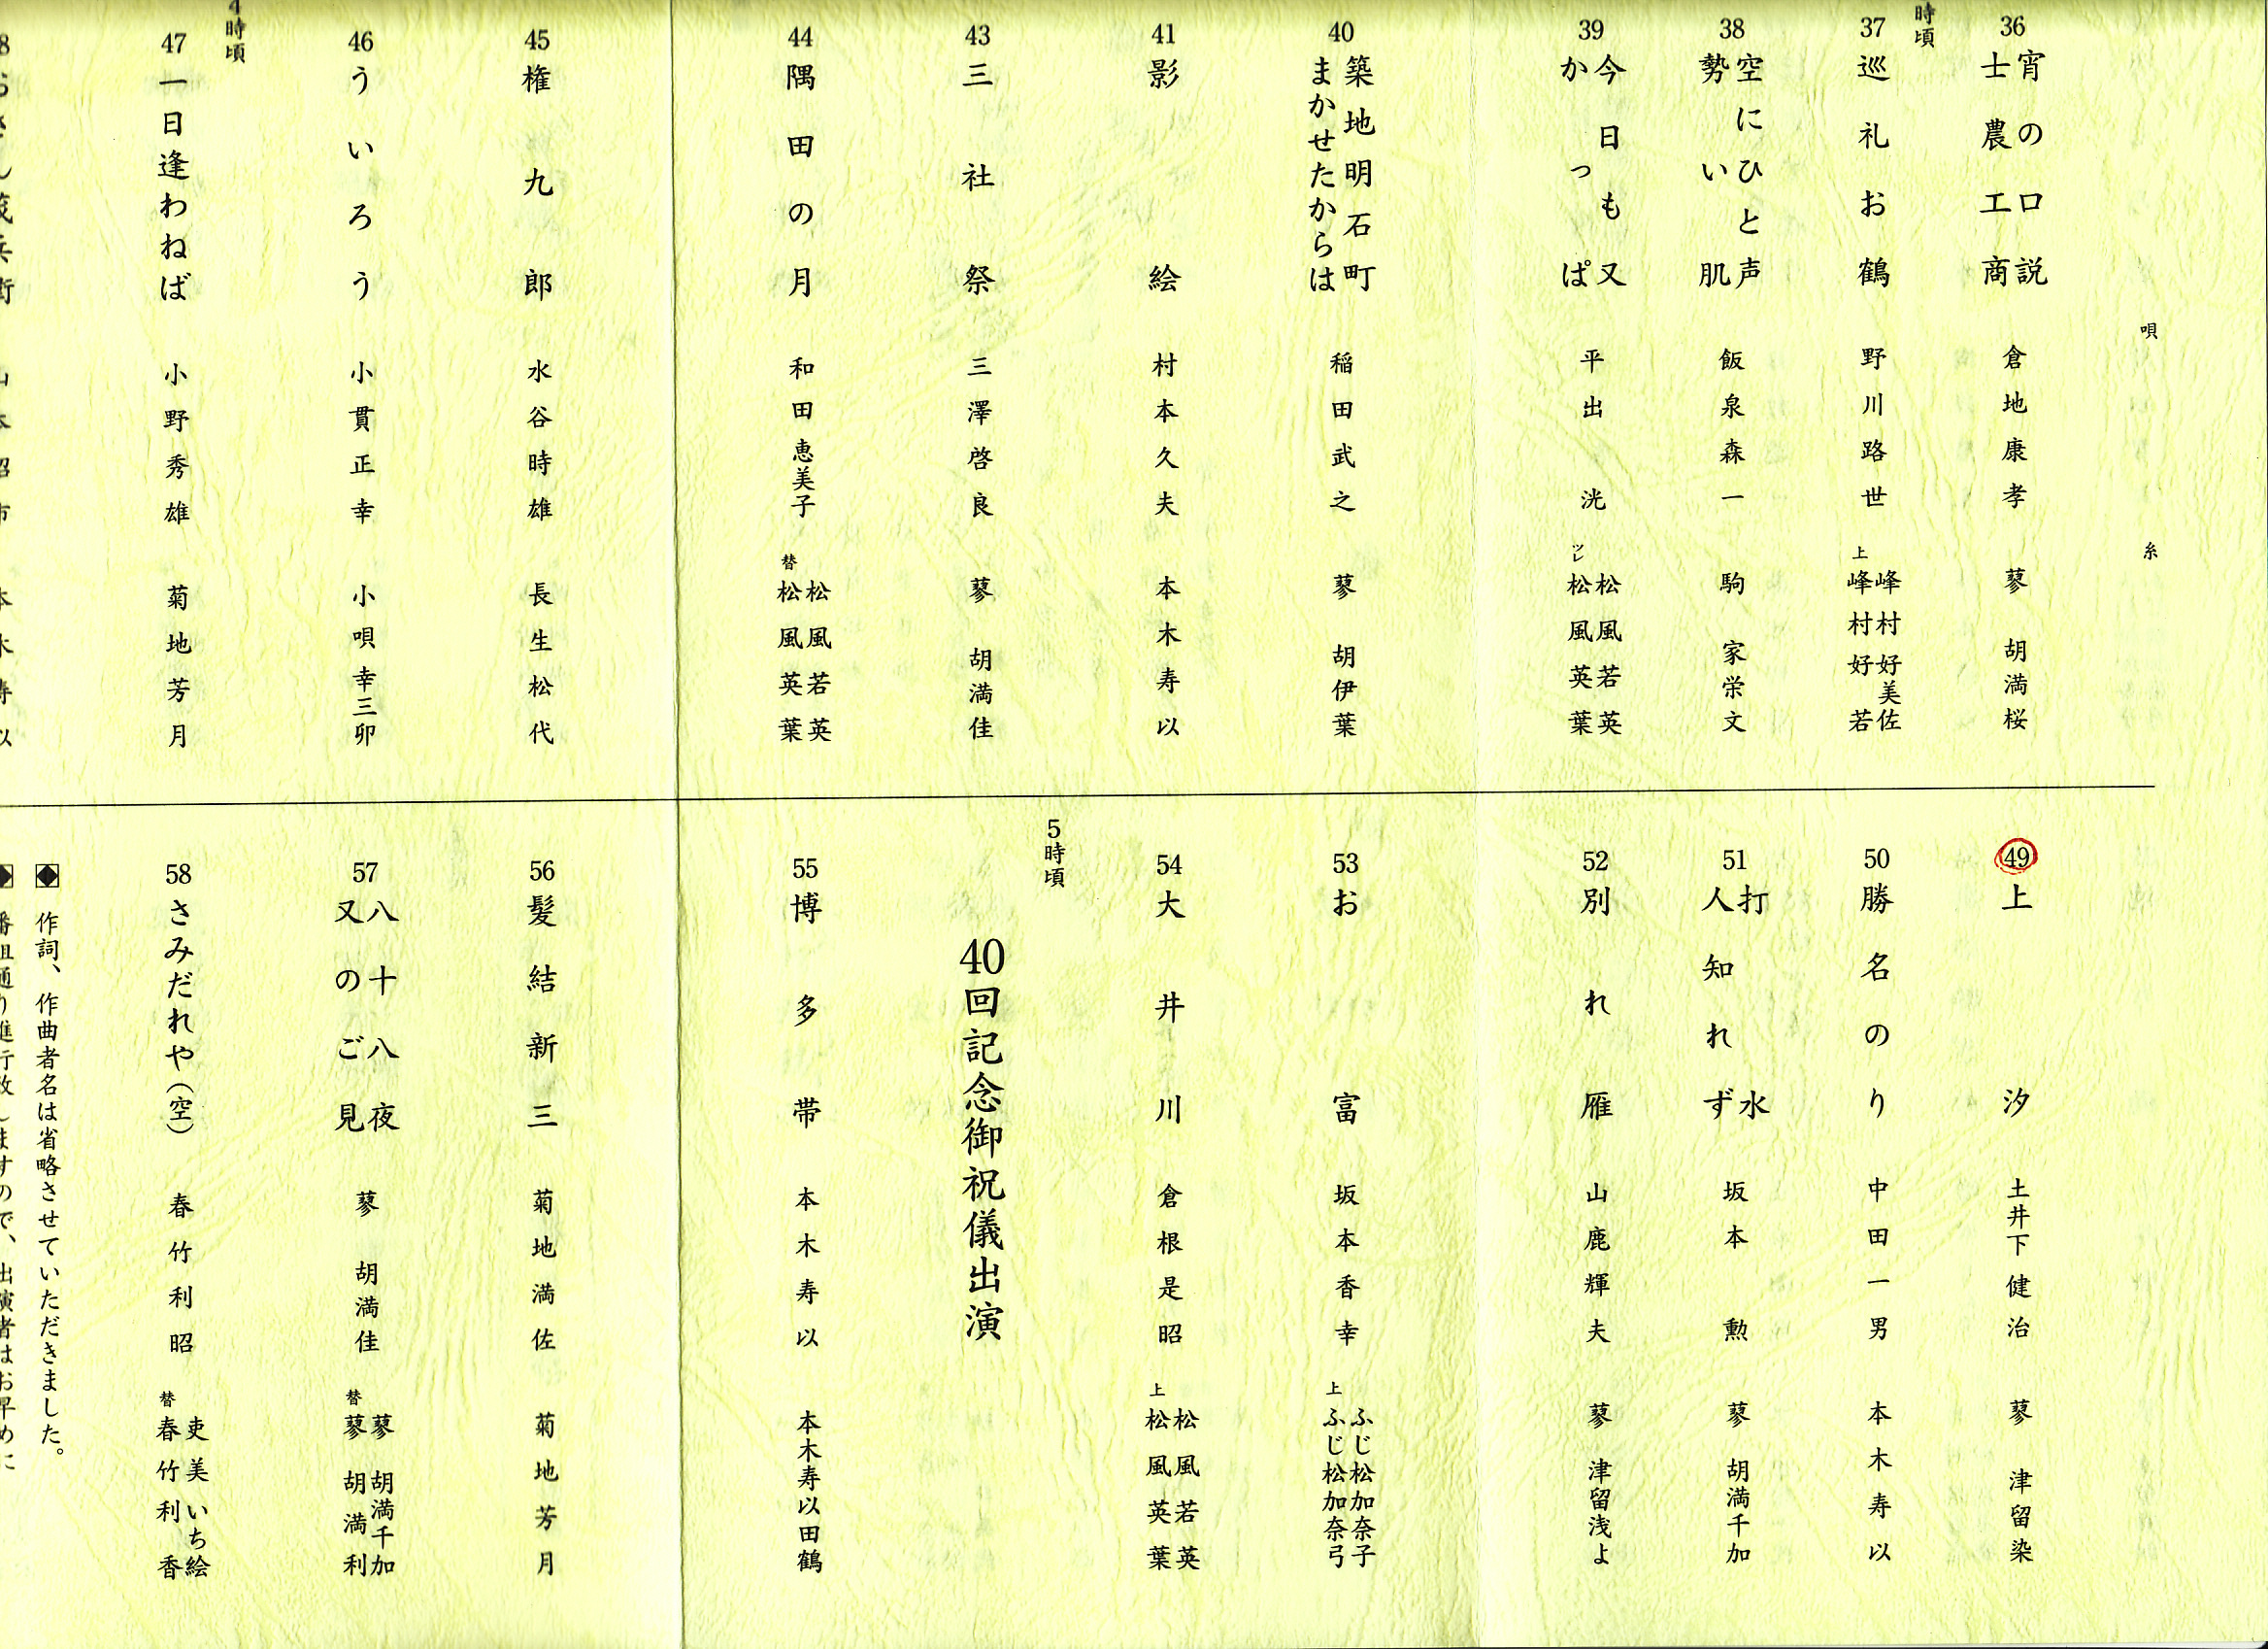 唄
糸
36
宵の口説
士農工商
倉地康孝
蓼 胡満桜
時頃
37
巡礼お鶴
野川路世
峰村好美佐
上 峰村好若
38
空にひと声
勢い肌
飯泉森一
駒 家栄文
39
今日も又
かっぱ
平出 洸
松風若英
ツレ 松風英葉
40
築地明石町
まかせたからは
稲田武之
蓼 胡伊葉
41
影絵
村本久夫
本木寿以
43
三社祭
三澤啓良
蓼 胡満佳
44
隅田の月
和田恵美子
松風若英
替 松風英葉
45
権九郎
水谷時雄
長生松代
46
ういろう
小貫正幸
小唄幸三卯
4時頃
47
一日逢わねば
小野秀雄
菊地芳月
49
上汐
土井下健治
蓼 津留染
50
勝名のり
中田一男
本木寿以
51
打水
人知れず
坂本 勲
蓼 胡満千加
52
別れ雁
山鹿輝夫
蓼 津留浅よ
53
お富
坂本香幸
ふじ松加奈子
上 ふじ松加奈弓
54
大井川
倉根是昭
松風若英
上 松風英葉
5時頃
40回記念御祝儀出演
55
博多帯
本木寿以
本木寿以田鶴
56
髪結新三
菊地満佐
菊地芳月
57
八十八夜
又のご見
蓼 胡満佳
蓼 胡満千加
替 蓼 胡満利
58
さみだれや(空)
春竹利昭
吏美いち絵
替 春竹利香
作詞、作曲者名は省略させていただきました。